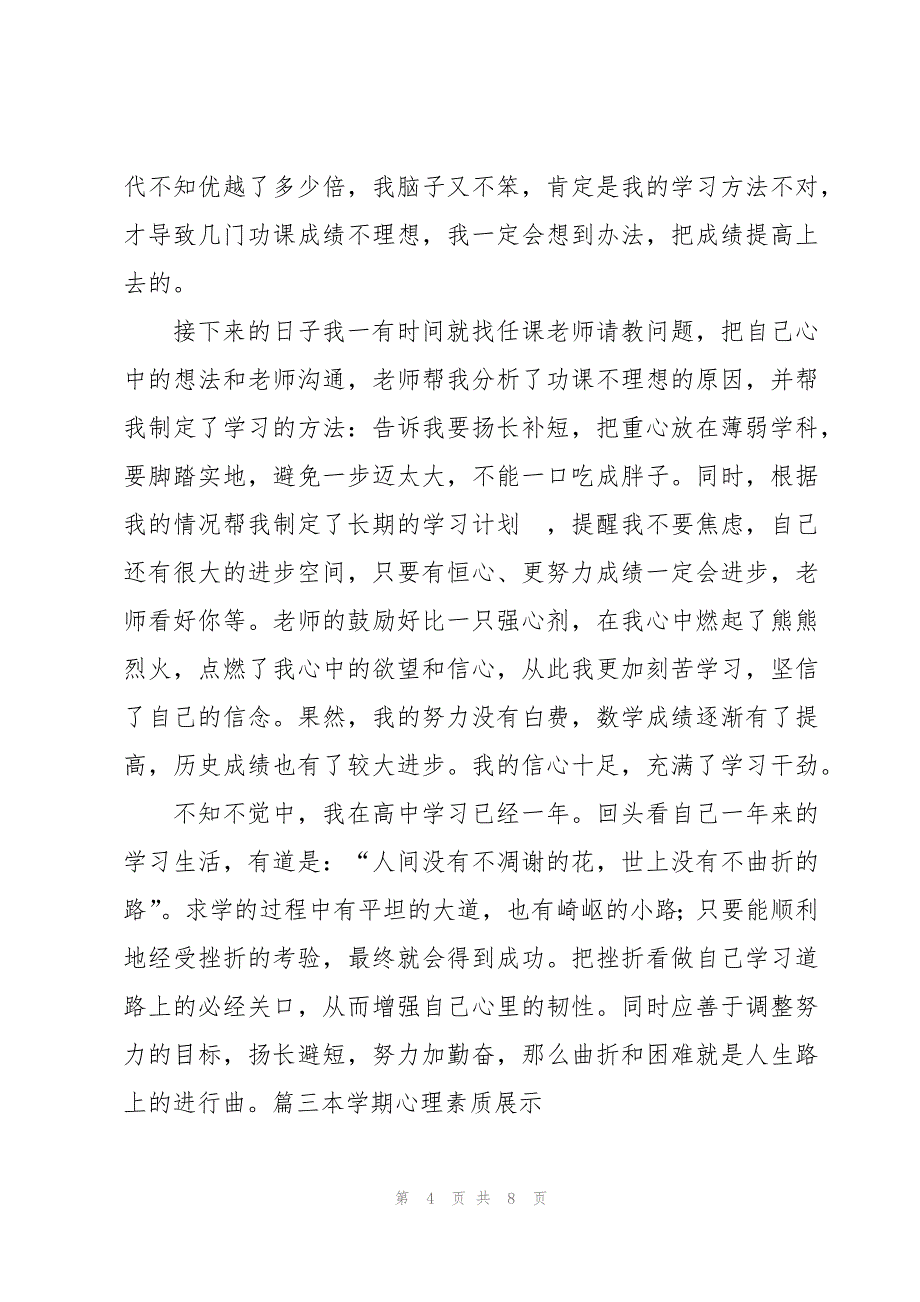 代不知优越了多少倍，我脑子又不笨，肯定是我的学习方法不对，
才导致几门功课成绩不理想，我一定会想到办法，把成绩提高上
去的。
接下来的日子我一有时间就找任课老师请教问题，把自己心
中的想法和老师沟通，老师帮我分析了功课不理想的原因，并帮
我制定了学习的方法：告诉我要扬长补短，把重心放在薄弱学科，
要脚踏实地，避免一步迈太大，不能一口吃成胖子。同时，根据
我的情况帮我制定了长期的学习计划　，提醒我不要焦虑，自己
还有很大的进步空间，只要有恒心、更努力成绩一定会进步，老
师看好你等。老师的鼓励好比一只强心剂，在我心中燃起了熊熊
烈火，点燃了我心中的欲望和信心，从此我更加刻苦学习，坚信
了自己的信念。果然，我的努力没有白费，数学成绩逐渐有了提
高，历史成绩也有了较大进步。我的信心十足，充满了学习干劲。
不知不觉中，我在高中学习已经一年。回头看自己一年来的
学习生活，有道是：“人间没有不凋谢的花，世上没有不曲折的
路”。求学的过程中有平坦的大道，也有崎岖的小路；只要能顺利
地经受挫折的考验，最终就会得到成功。把挫折看做自己学习道
路上的必经关口，从而增强自己心里的韧性。同时应善于调整努
力的目标，扬长避短，努力加勤奋，那么曲折和困难就是人生路
上的进行曲。篇三本学期心理素质展示
第 4 页 共 8 页